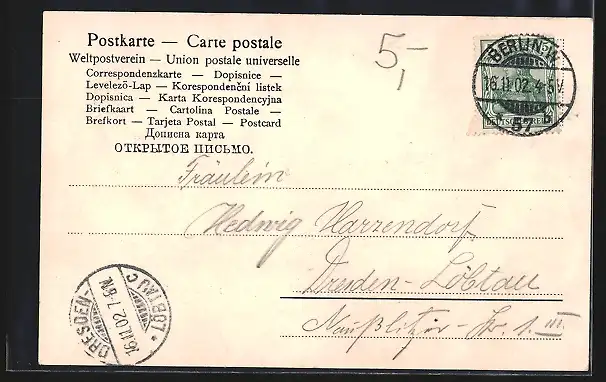 Postkarte — Carte postale
Weltpostverein — Union postale universelle
Correspondenzkarte — Dopisnice —
Levelező-Lap — Korespondenční listek
Dopisnica — Karta Korespondencyjna
Briefkaart — Cartolina Postale —
Brefkort — Tarjeta Postal — Postcard
Дописна карта
ОТКРЫТОЕ ПИСЬМО.
5,-
BERLIN W.
16.11.02. 4-5V.
57
DEUTSCHES REICH
Fräulein
Hedwig Harzendorf
Dresden-Löbtau
Naußlitzer-Str. 1. III.
DRESDEN-LÖBTAU C
16.11.02. 7-8N.